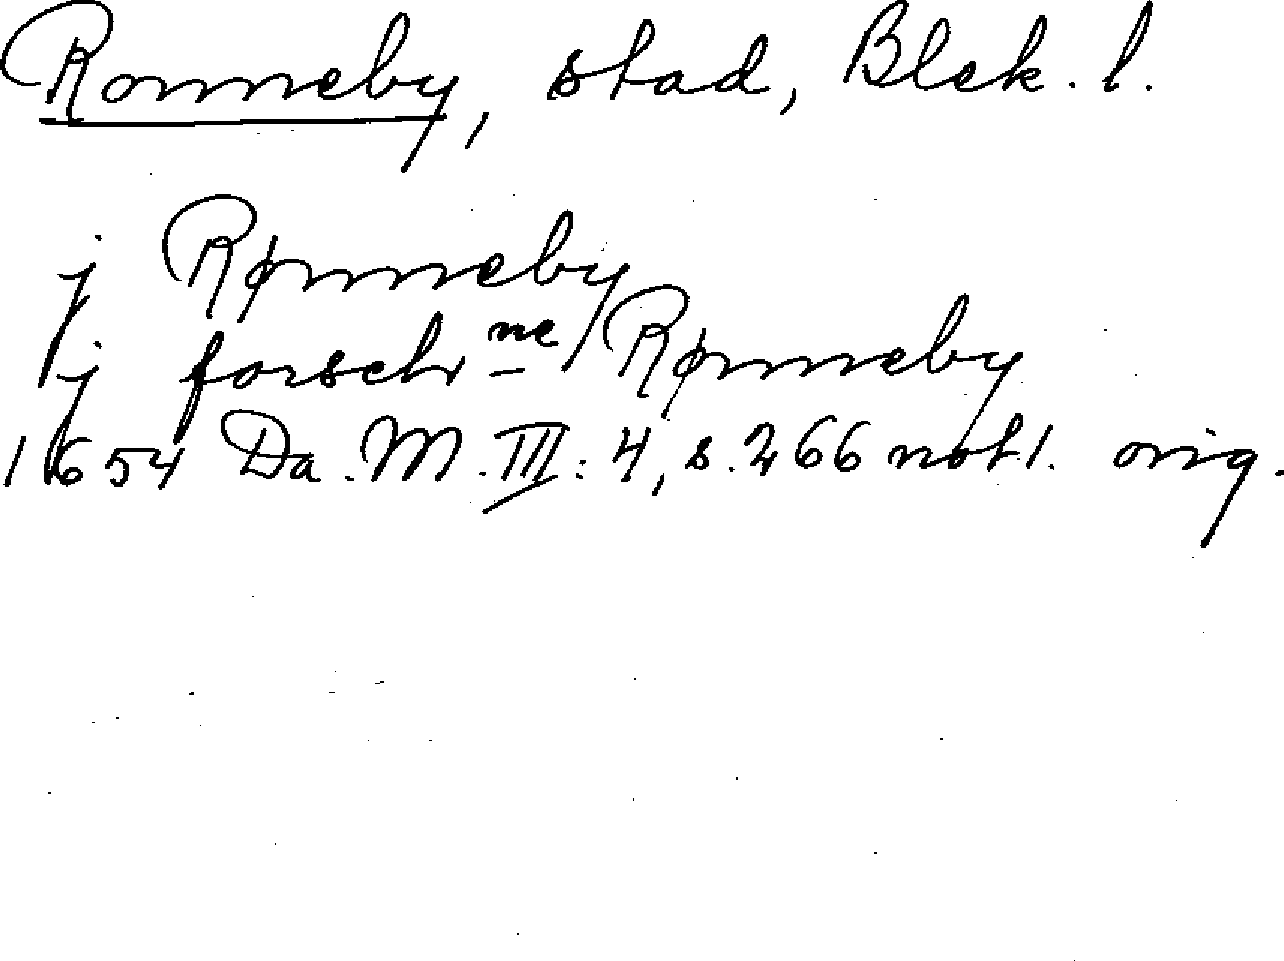 Ronneby, stad, Blek. l.
j Rønneby
j forschr ne Rønneby
1654 Da. M. III: 4, s. 266 not 1. orig.